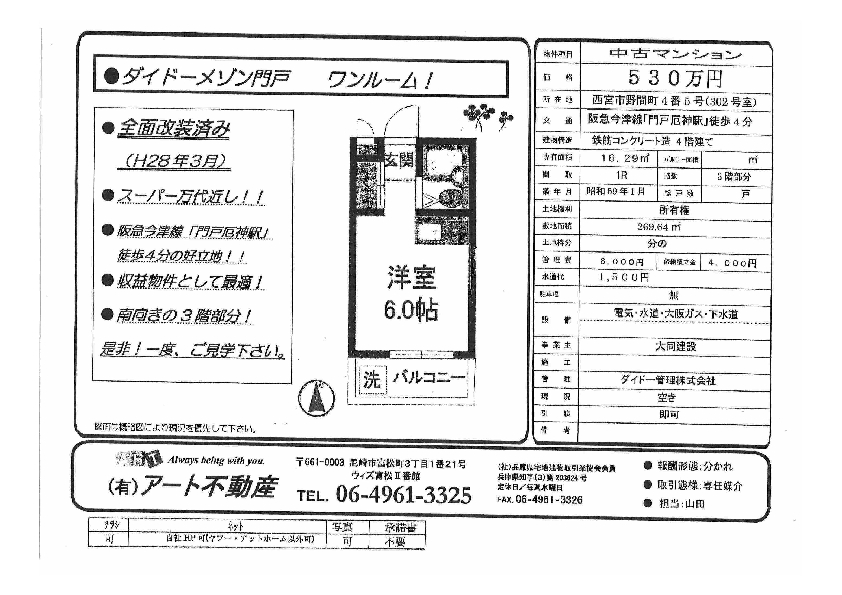 ●ダイドーメゾン門戸 ワンルーム！
●全面改装済み
（H28年3月）
●スーパー万代近し！！
●阪急今津線「門戸厄神駅」
徒歩4分の好立地！！
●収益物件として最適！
●南向きの3階部分！
是非！一度、ご見学下さい。
玄関
洋室
6.0帖
洗 バルコニー
図面は概略図により現況を優先して下さい。
物件種目 中古マンション
価格 530万円
所在地 西宮市野間町4番5号(302号室)
交通 阪急今津線「門戸厄神駅」徒歩4分
建物構造 鉄筋コンクリート造 4階建て
専有面積 16.29㎡ ㎡
間取 1R 階数 3階部分
築年月 昭和59年1月 総戸数 戸
土地権利 所有権
敷地面積 269.64㎡
土地持分 分の
管理費 6,000円 修繕積立金 4,000円
水道代 1,500円
駐車場 無
設備 電気・水道・大阪ガス・下水道
事業主 大同建設
施工
管理 ダイドー管理株式会社
現況 空き
引渡 即可
備考
ART Always being with you.
(有)アート不動産
〒661-0003 尼崎市富松町3丁目1番21号
ウィズ富松Ⅱ番館
TEL. 06-4961-3325
(社)兵庫県宅地建物取引業協会会員
兵庫県知事(3)第203624号
定休日／毎週水曜日
FAX. 06-4961-3326
●報酬形態:分かれ
●取引態様:専任媒介
●担当:山田
チラシ ネット 写真 承諾書
可 自社HP可(ヤフー・アットホーム以外可) 可 不要